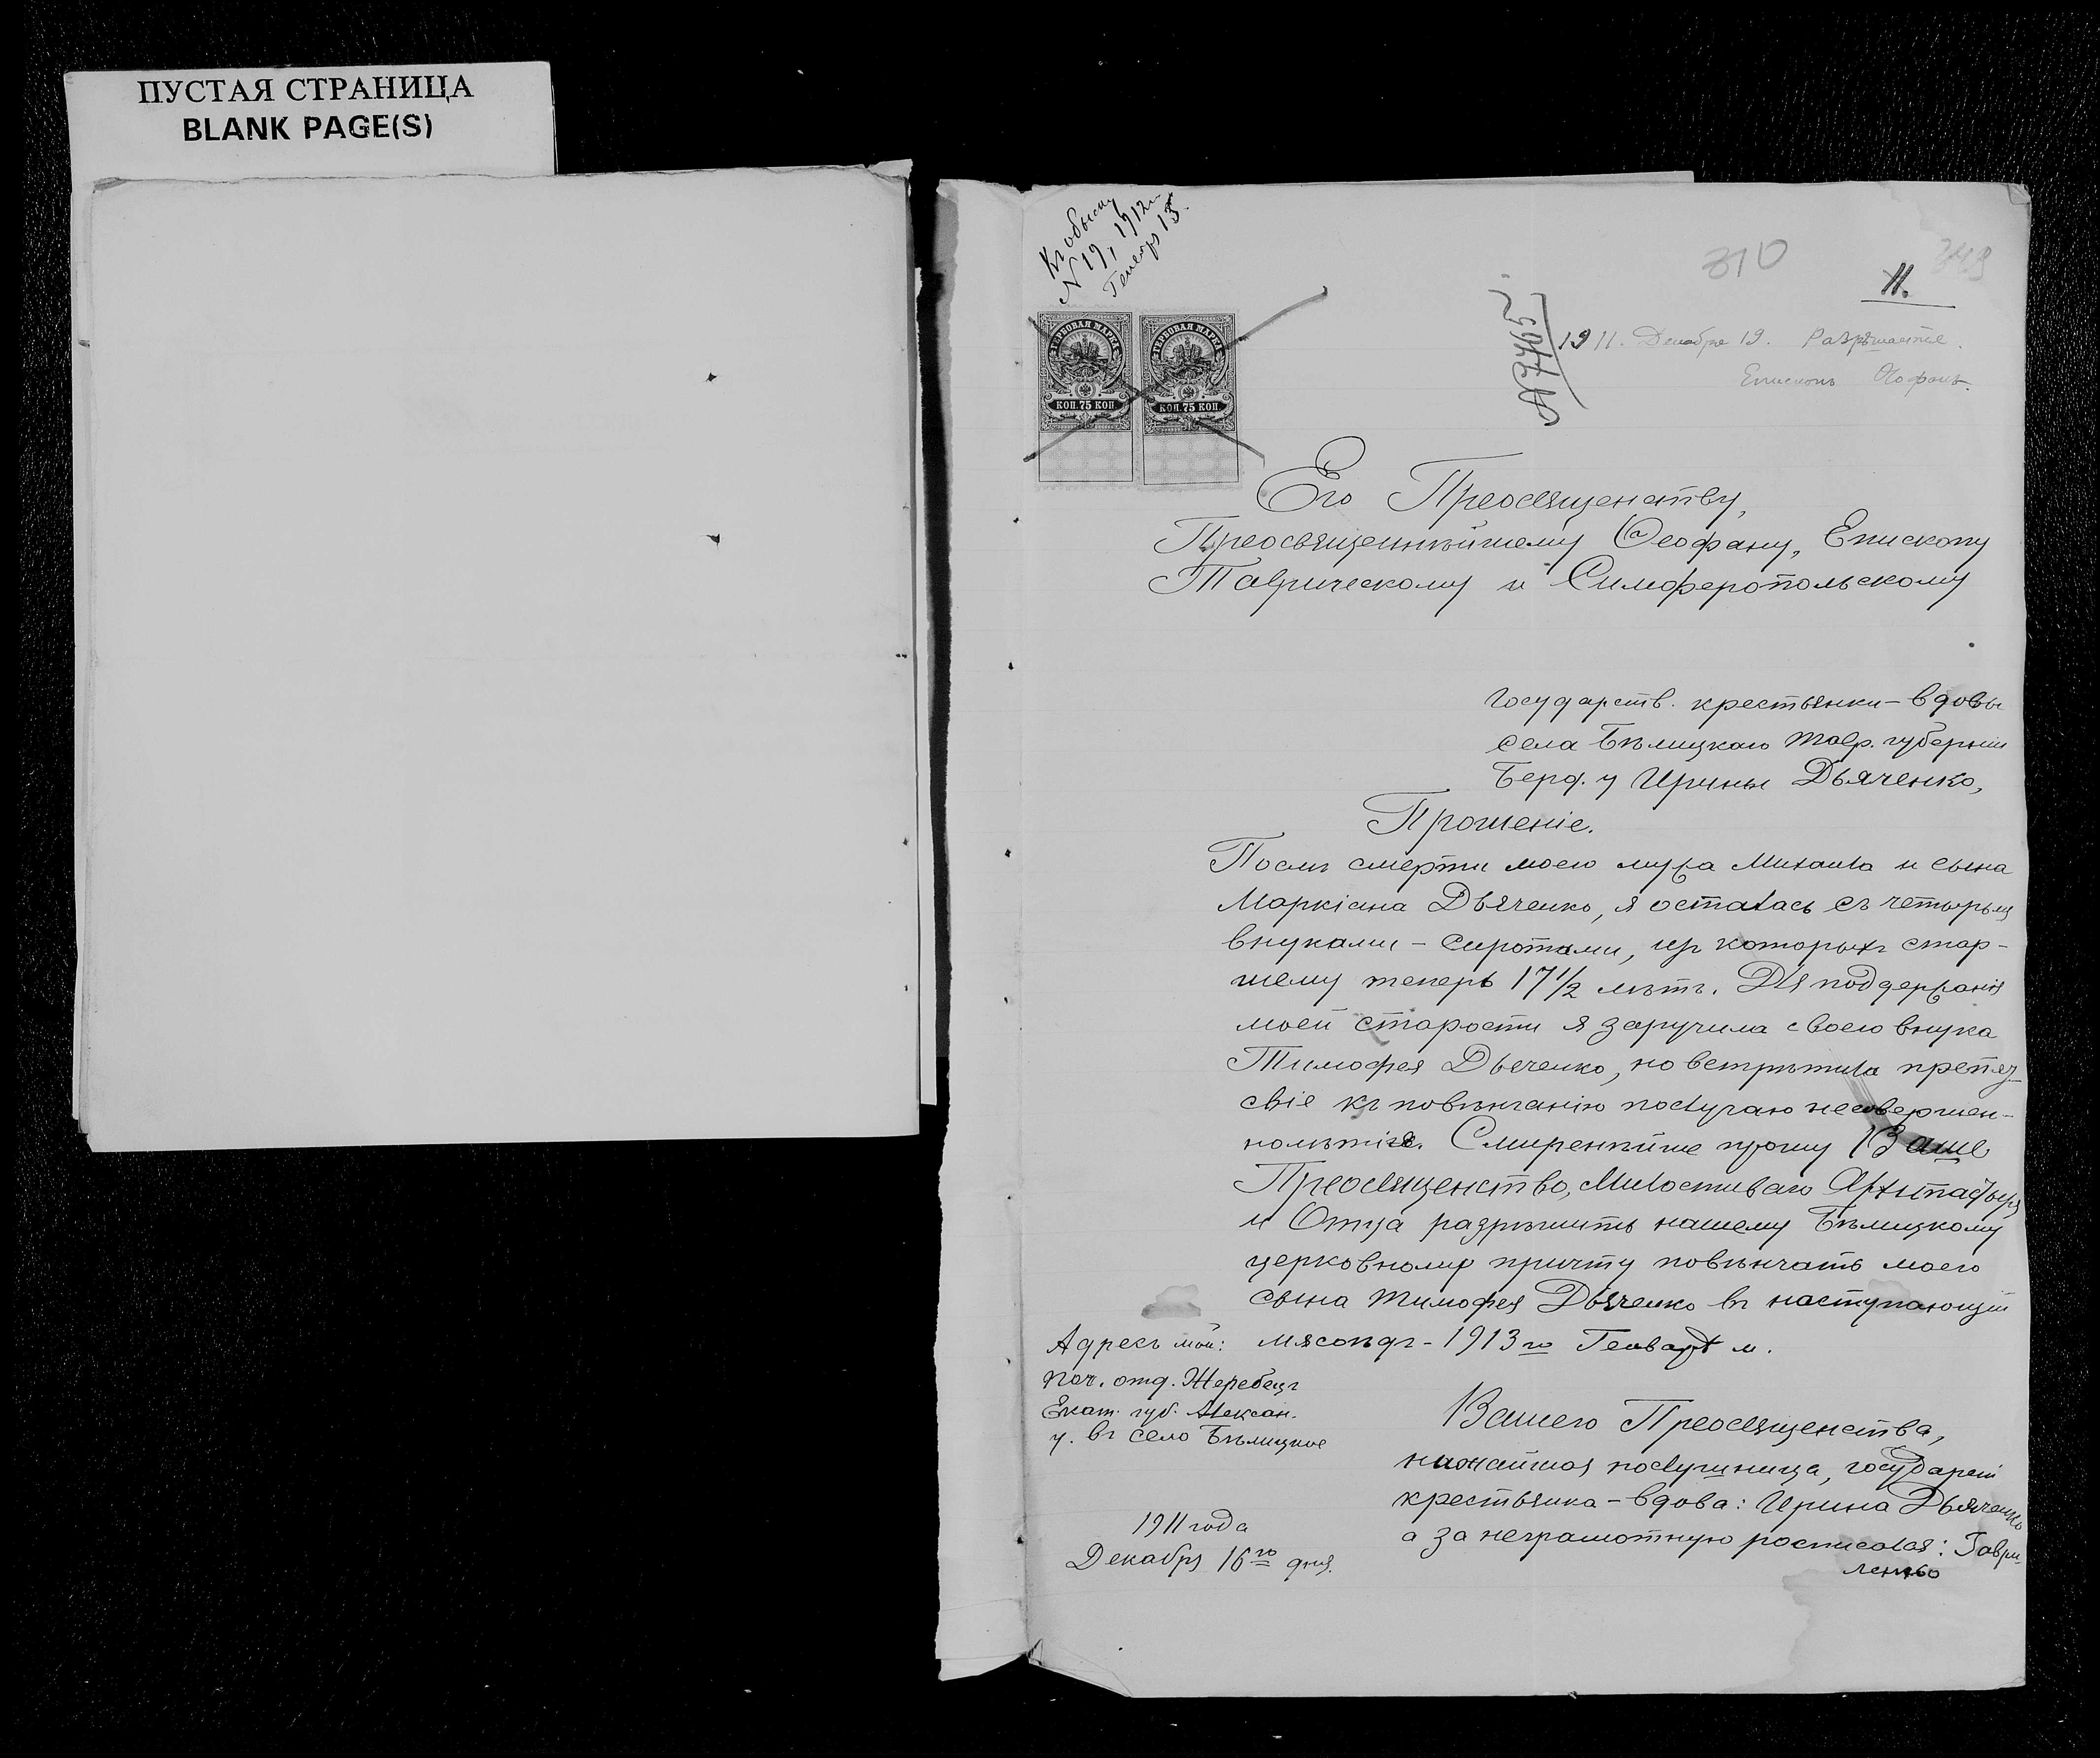 ПУСТАЯ СТРАНИЦА
BLANK PAGE(S)
Къ обыску
N 19, 1912 г.
Генвр 13
ГЕРБОВАЯ МАРКА
КОП. 75 КОП
ГЕРБОВАЯ МАРКА
КОП. 75 КОП
310
349
11.
1911. Декабря 19. Разрѣшается.
Епископъ Ѳеофанъ.
Его Преосвященству,
Преосвященнѣйшему Ѳеофану, Епископу
Таврическому и Симферопольскому
Государств. крестьянки-вдовы
села Бѣлицкаго Тавр. губерніи
Берд. у Ирины Дьяченко,
Прошеніе.
Послѣ смерти моего мужа Михаила и сына
Маркіана Дьяченко, я осталась съ четырьмя
внуками - сиротами, изъ которыхъ стар-
шему теперь 17 1/2 лѣтъ. Для поддержанія
моей старости я заручила своего внука
Тимофея Дьяченко, но встрѣтила препят-
свіе къ повѣнчанію послучаю несовершен-
нолѣтія. Смиреннѣйше прошу Ваше
Преосвященство, Милостиваго Архипастыря
и Отца разрѣшить нашему Бѣлицкому
церковному причту повѣнчать моего
сына Тимофея Дьяченко въ наступающій
мясоѣдъ - 1913 го Генваря м.
Адресъ мой:
поч. отд. Жеребецъ
Екат. губ. Алексан.
у. въ село Бѣлицкое
Вашего Преосвященства,
нижайшая послушница, государст
крестьянка - вдова: Ирина Дьяченко
а за неграмотную росписался: Гаври-
ленко
1911 года
Декабря 16 го дня.